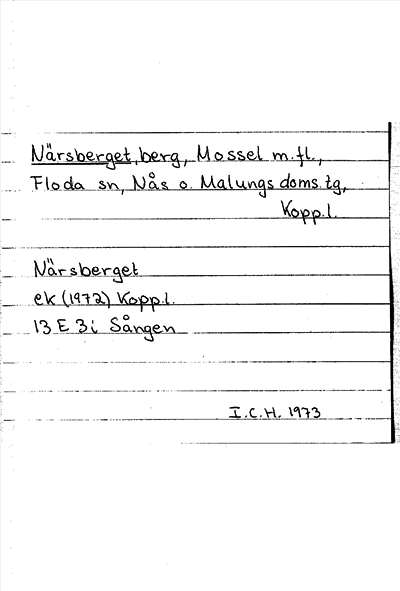 Närsberget, berg, Mossel m.fl.,
Floda sn, Nås o. Malungs doms.tg,
Kopp.l.
Närsberget
ek (1972) Kopp.l.
13 E 3i Sången
I.C.H. 1973